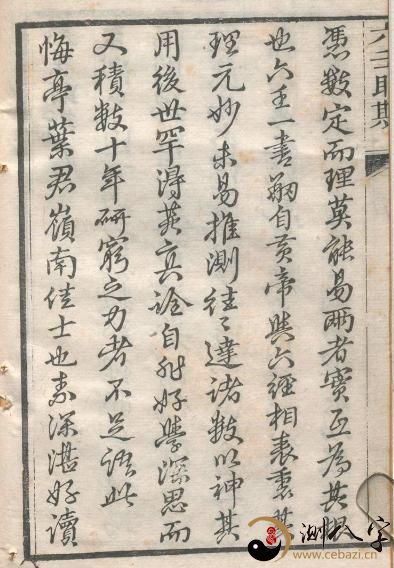 六壬眎斯
憑數定而理莫能易兩者實互為其
也六壬一書剏自黃帝與六經相表裏其
理元妙未易推測往〻達諸數以神其
用後世罕得其真詮自非好學深思而
又積數十年研窮之力者不足語此
悔亭葉君嶺南佳士也素深湛好讀
測八字
www.cebazi.com